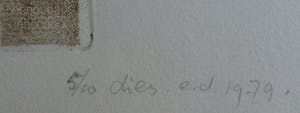 5/10 dies e.d. 1979.